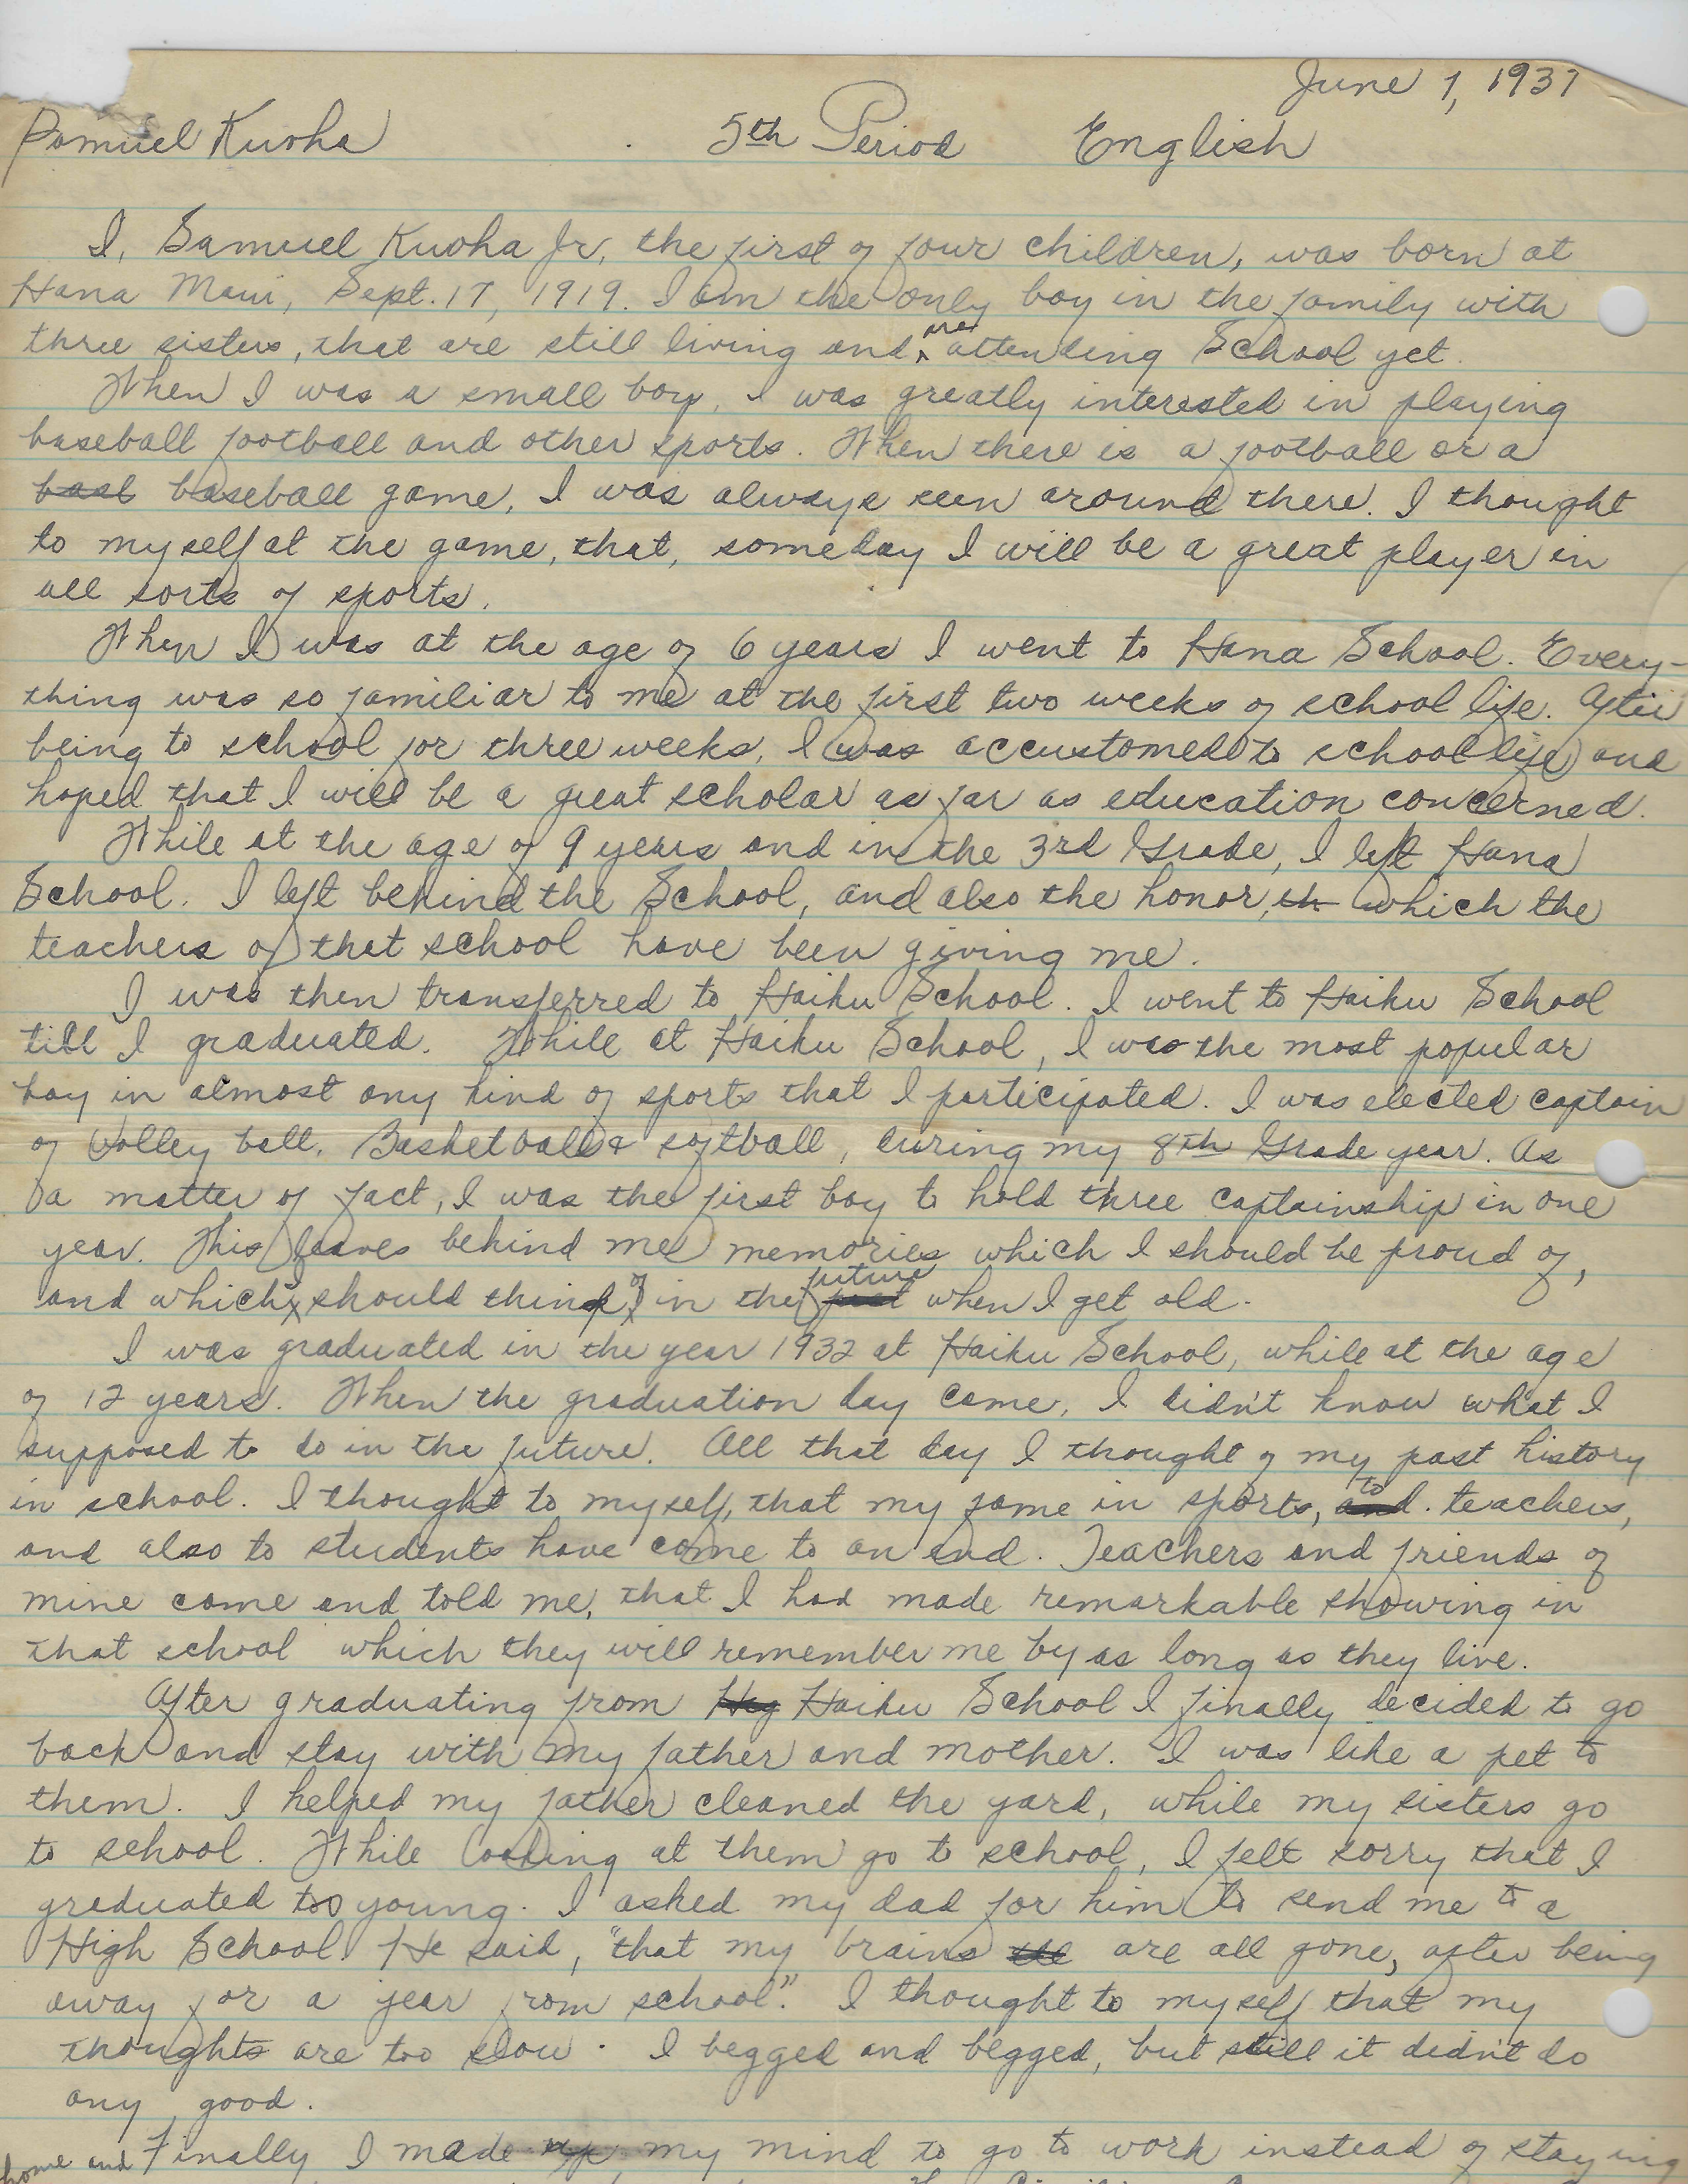 June 1, 1937
Samuel Kuoha 5th Period English
I, Samuel Kuoha Jr, the first of four children, was born at
Hana Maui, Sept. 17, 1919. I am the only boy in the family with
three sisters, that are still living and are attending School yet.
When I was a small boy, I was greatly interested in playing
baseball football and other sports. When there is a football or a
basl baseball game, I was always seen around there. I thought
to myself at the game, that, someday I will be a great player in
all sorts of sports.
When I was at the age of 6 years I went to Hana School. Every-
thing was so familiar to me at the first two weeks of school life. After
being to school for three weeks, I was accustomed to school life and
hoped that I will be a great scholar as far as education concerned.
While at the age of 9 years and in the 3rd Grade, I left Hana
School. I left behind the School, and also the honor, th which the
teachers of that school have been giving me.
I was then transferred to Haiku School. I went to Haiku School
till I graduated. While at Haiku School, I was the most popular
boy in almost any kind of sports that I participated. I was elected captain
of Volley ball, Basketball & softball, during my 8th Grade year. As
a matter of fact, I was the first boy to hold three captainship in one
year. This leaves behind me memories which I should be proud of,
and which I should think of in the past future when I get old.
I was graduated in the year 1932 at Haiku School, while at the age
of 12 years. When the graduation day came, I didn't know what I
supposed to do in the future. All that day I thought of my past history
in school. I thought to myself, that my fame in sports, and to teachers,
and also to students have come to an end. Teachers and friends of
mine came and told me, that I had made remarkable showing in
that school which they will remember me by as long as they live.
After graduating from Hig Haiku School I finally decided to go
back and stay with my father and mother. I was like a pet to
them. I helped my father cleaned the yard, while my sisters go
to school. While looking at them go to school, I felt sorry that I
graduated too young. I asked my dad for him to send me to a
High School. He said, "that my brains are all gone, after being
away for a year from school". I thought to myself that my
thoughts are too slow. I begged and begged, but still it didn't do
any good.
home and Finally I made up my mind to go to work instead of staying